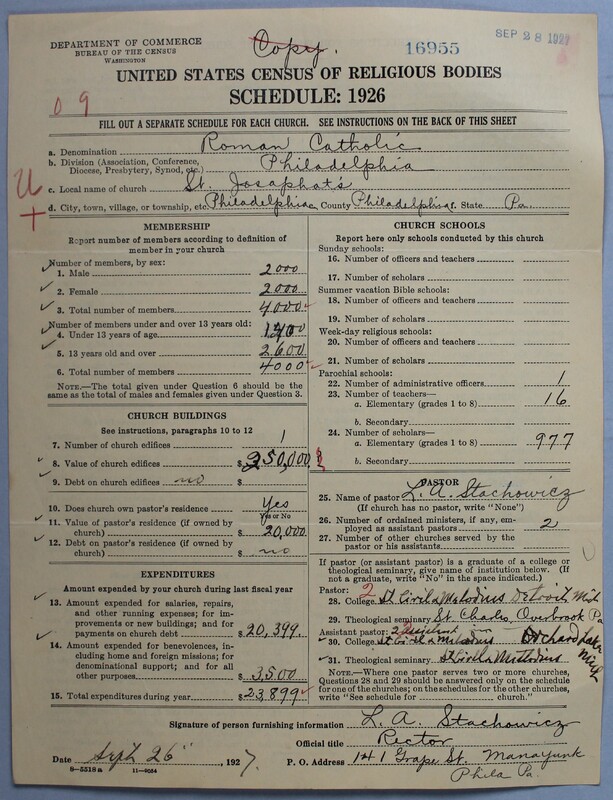 DEPARTMENT OF COMMERCE
BUREAU OF THE CENSUS
WASHINGTON
Copy.
16955
SEP 28 1927
UNITED STATES CENSUS OF RELIGIOUS BODIES
SCHEDULE: 1926
0 9
FILL OUT A SEPARATE SCHEDULE FOR EACH CHURCH. SEE INSTRUCTIONS ON THE BACK OF THIS SHEET
a. Denomination Roman Catholic
b. Division (Association, Conference, Diocese, Presbytery, Synod, etc.) Philadelphia
c. Local name of church St. Josaphat's
d. City, town, village, or township, etc. Philadelphia County Philadelphia State Pa.
MEMBERSHIP
Report number of members according to definition of
member in your church
Number of members, by sex:
1. Male 2000
2. Female 2000
3. Total number of members 4000
Number of members under and over 13 years old:
4. Under 13 years of age 1400
5. 13 years old and over 2600
6. Total number of members 4000
NOTE.—The total given under Question 6 should be
the same as the total of males and females given under Question 3.
CHURCH BUILDINGS
See instructions, paragraphs 10 to 12
7. Number of church edifices 1
8. Value of church edifices $250,000
9. Debt on church edifices no $
10. Does church own pastor's residence Yes
Yes or No
11. Value of pastor's residence (if owned by
church) $20,000
12. Debt on pastor's residence (if owned by
church) $ no
EXPENDITURES
Amount expended by your church during last fiscal year
13. Amount expended for salaries, repairs,
and other running expenses; for im-
provements or new buildings; and for
payments on church debt $20,399.
14. Amount expended for benevolences, in-
cluding home and foreign missions; for
denominational support; and for all
other purposes $3,500
15. Total expenditures during year $23,899
CHURCH SCHOOLS
Report here only schools conducted by this church
Sunday schools:
16. Number of officers and teachers
17. Number of scholars
Summer vacation Bible schools:
18. Number of officers and teachers
19. Number of scholars
Week-day religious schools:
20. Number of officers and teachers
21. Number of scholars
Parochial schools:
22. Number of administrative officers 1
23. Number of teachers—
a. Elementary (grades 1 to 8) 16
b. Secondary
24. Number of scholars—
a. Elementary (grades 1 to 8) 977
b. Secondary
PASTOR
25. Name of pastor L. A. Stachowicz
(If church has no pastor, write "None")
26. Number of ordained ministers, if any, em-
ployed as assistant pastors 2
27. Number of other churches served by the
pastor or his assistants
If pastor (or assistant pastor) is a graduate of a college or
theological seminary, give name of institution below. (If
not a graduate, write "No" in the space indicated.)
Pastor: 2
28. College St Ciril & Metodius Detroit Mich
29. Theological seminary St Charles Overbrook Pa
Assistant pastor: 2
30. College St Ciril & Metodius Orchard Lake
Mich
31. Theological seminary St Ciril & Metodius
NOTE.—Where one pastor serves two or more churches,
Questions 28 and 29 should be answered only on the schedule
for one of the churches; on the schedules for the other churches,
write "See schedule for church."
Signature of person furnishing information L. A. Stachowicz
Official title Rector
Date Sept 26 1927. P. O. Address 141 Grape St. Manayunk
Phila Pa.
8—5518 a 11—9054